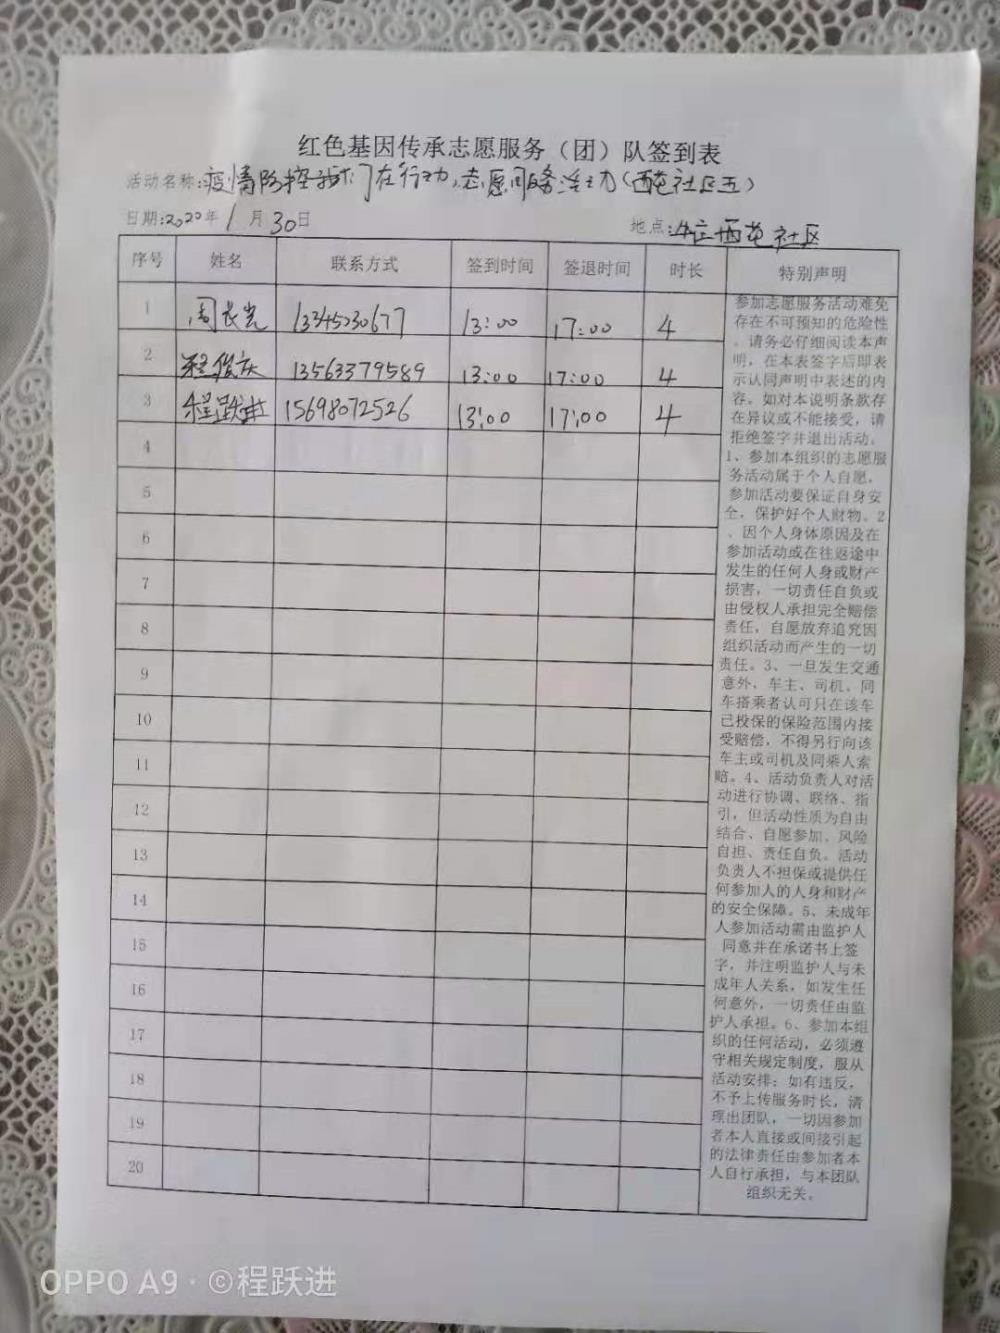 红色基因传承志愿服务（团）队签到表
活动名称:疫情防控我们在行动,志愿服务活动(西屯社区五)
日期:2020年1月30日 地点:西屯社区
序号 姓名 联系方式 签到时间 签退时间 时长 特别声明
1 周长光 13345230677 13:00 17:00 4
2 程俊庆 13563379589 13:00 17:00 4
3 程跃进 15698072526 13:00 17:00 4
4
5
6
7
8
9
10
11
12
13
14
15
16
17
18
19
20
参加志愿服务活动难免
存在不可预知的危险性
，请务必仔细阅读本声
明，在本表签字后即表
示认同声明中表述的内
容。如对本说明条款存
在异议或不能接受，请
拒绝签字并退出活动。
1、参加本组织的志愿服
务活动属于个人自愿，
参加活动要保证自身安
全，保护好个人财物。2
、因个人身体原因及在
参加活动或在往返途中
发生的任何人身或财产
损害，一切责任自负或
由侵权人承担完全赔偿
责任，自愿放弃追究因
组织活动而产生的一切
责任。3、一旦发生交通
意外，车主、司机、同
车搭乘者认可只在该车
已投保的保险范围内接
受赔偿，不得另行向该
车主或司机及同乘人索
赔。4、活动负责人对活
动进行协调、联络、指
引，但活动性质为自由
结合、自愿参加、风险
自担、责任自负。活动
负责人不担保或提供任
何参加人的人身和财产
的安全保障。5、未成年
人参加活动需由监护人
同意并在承诺书上签
字，并注明监护人与未
成年人关系，如发生任
何意外，一切责任由监
护人承担。6、参加本组
织的任何活动，必须遵
守相关规定制度，服从
活动安排；如有违反，
不予上传服务时长，清
理出团队，一切因参加
者本人直接或间接引起
的法律责任由参加者本
人自行承担，与本团队
组织无关。
OPPO A9 · ©程跃进